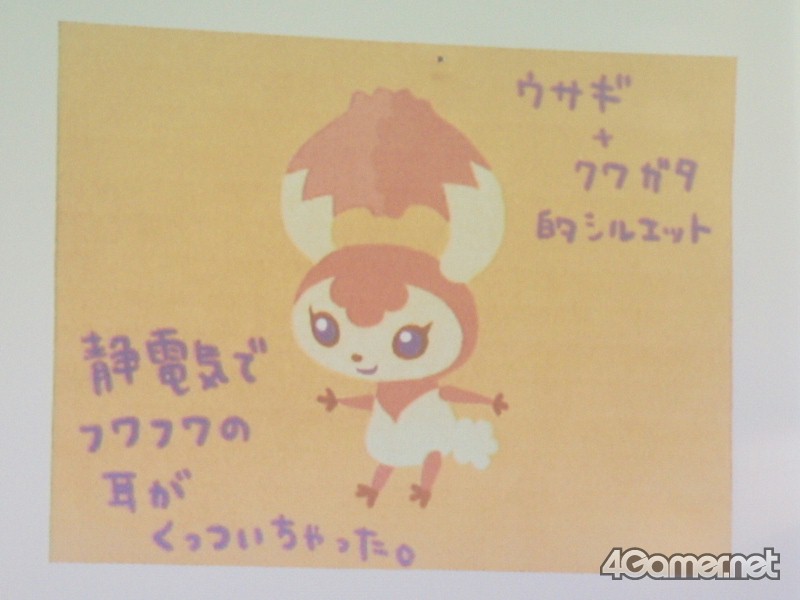 ウサギ
+
クワガタ
的シルエット
静電気で
フワフワの
耳が
くっついちゃった。
4Gamer.net